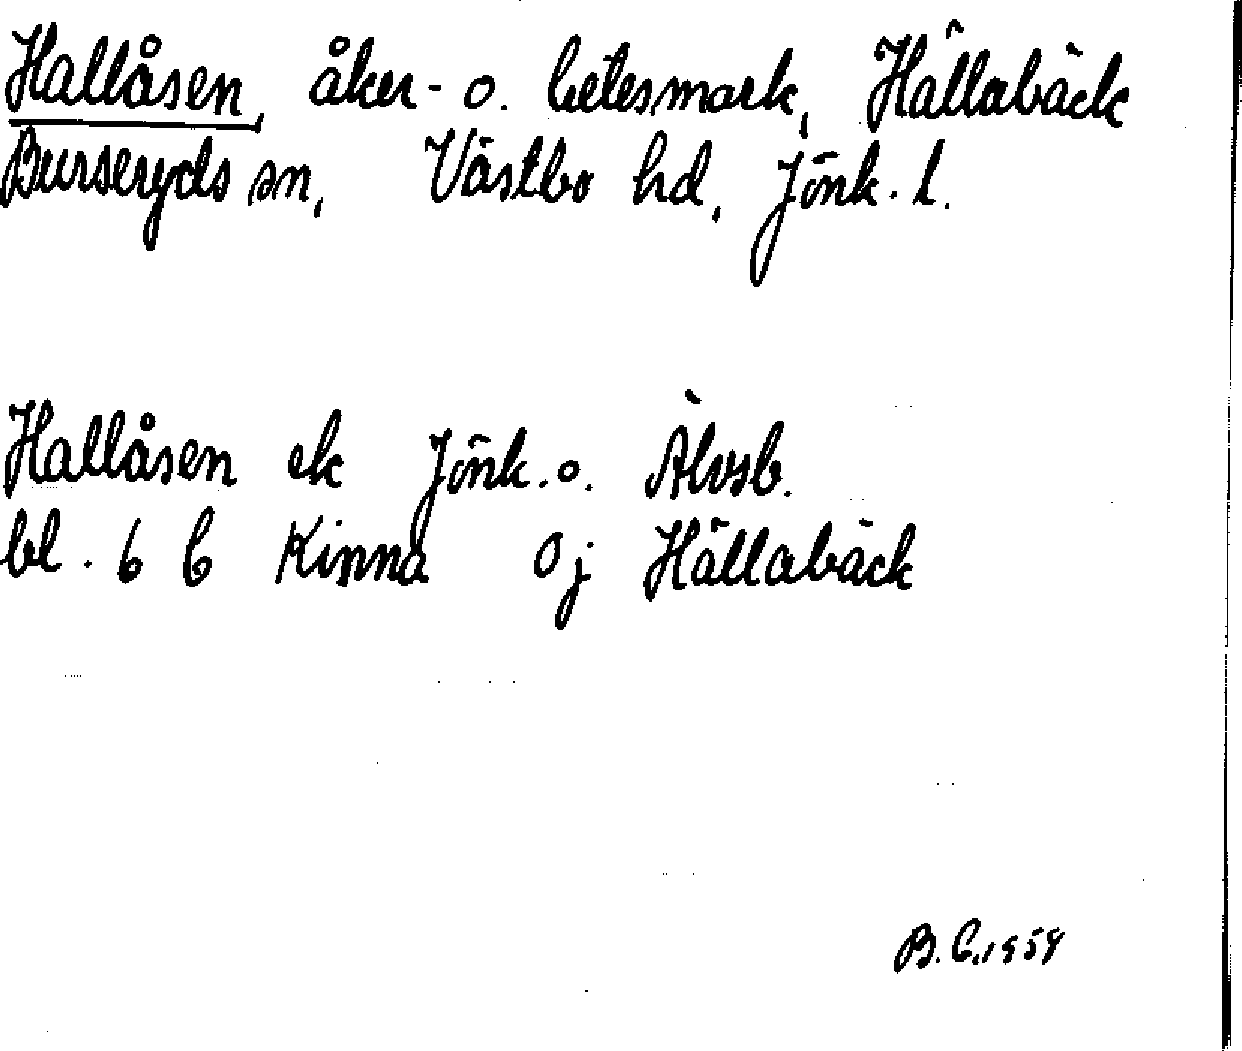 Hallåsen, åker- o. betesmark, Hällabäck
Burseryds sn, Västbo hd, Jönk. l.
Hallåsen ek Jönk. o. Älvsb.
bl. 6 C Kinna 0j Hällabäck
B. C. 1959